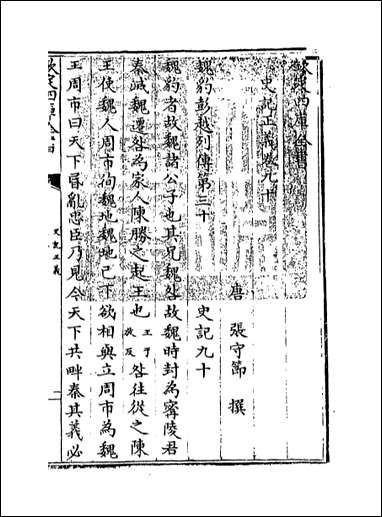 欽定四庫全書
史記正義卷九十
唐 張守節 撰
魏豹彭越列傳第三十 史記九十
魏豹者故魏諸公子也其兄魏咎故魏時封為寗陵君
秦滅魏遷咎為家人陳勝之起王也王于放反咎往從之陳
王使魏人周市徇魏地魏地已下欲相與立周市為魏
王周市曰天下昬亂忠臣乃見今天下共畔秦其義必
欽定四庫全書
史記正義